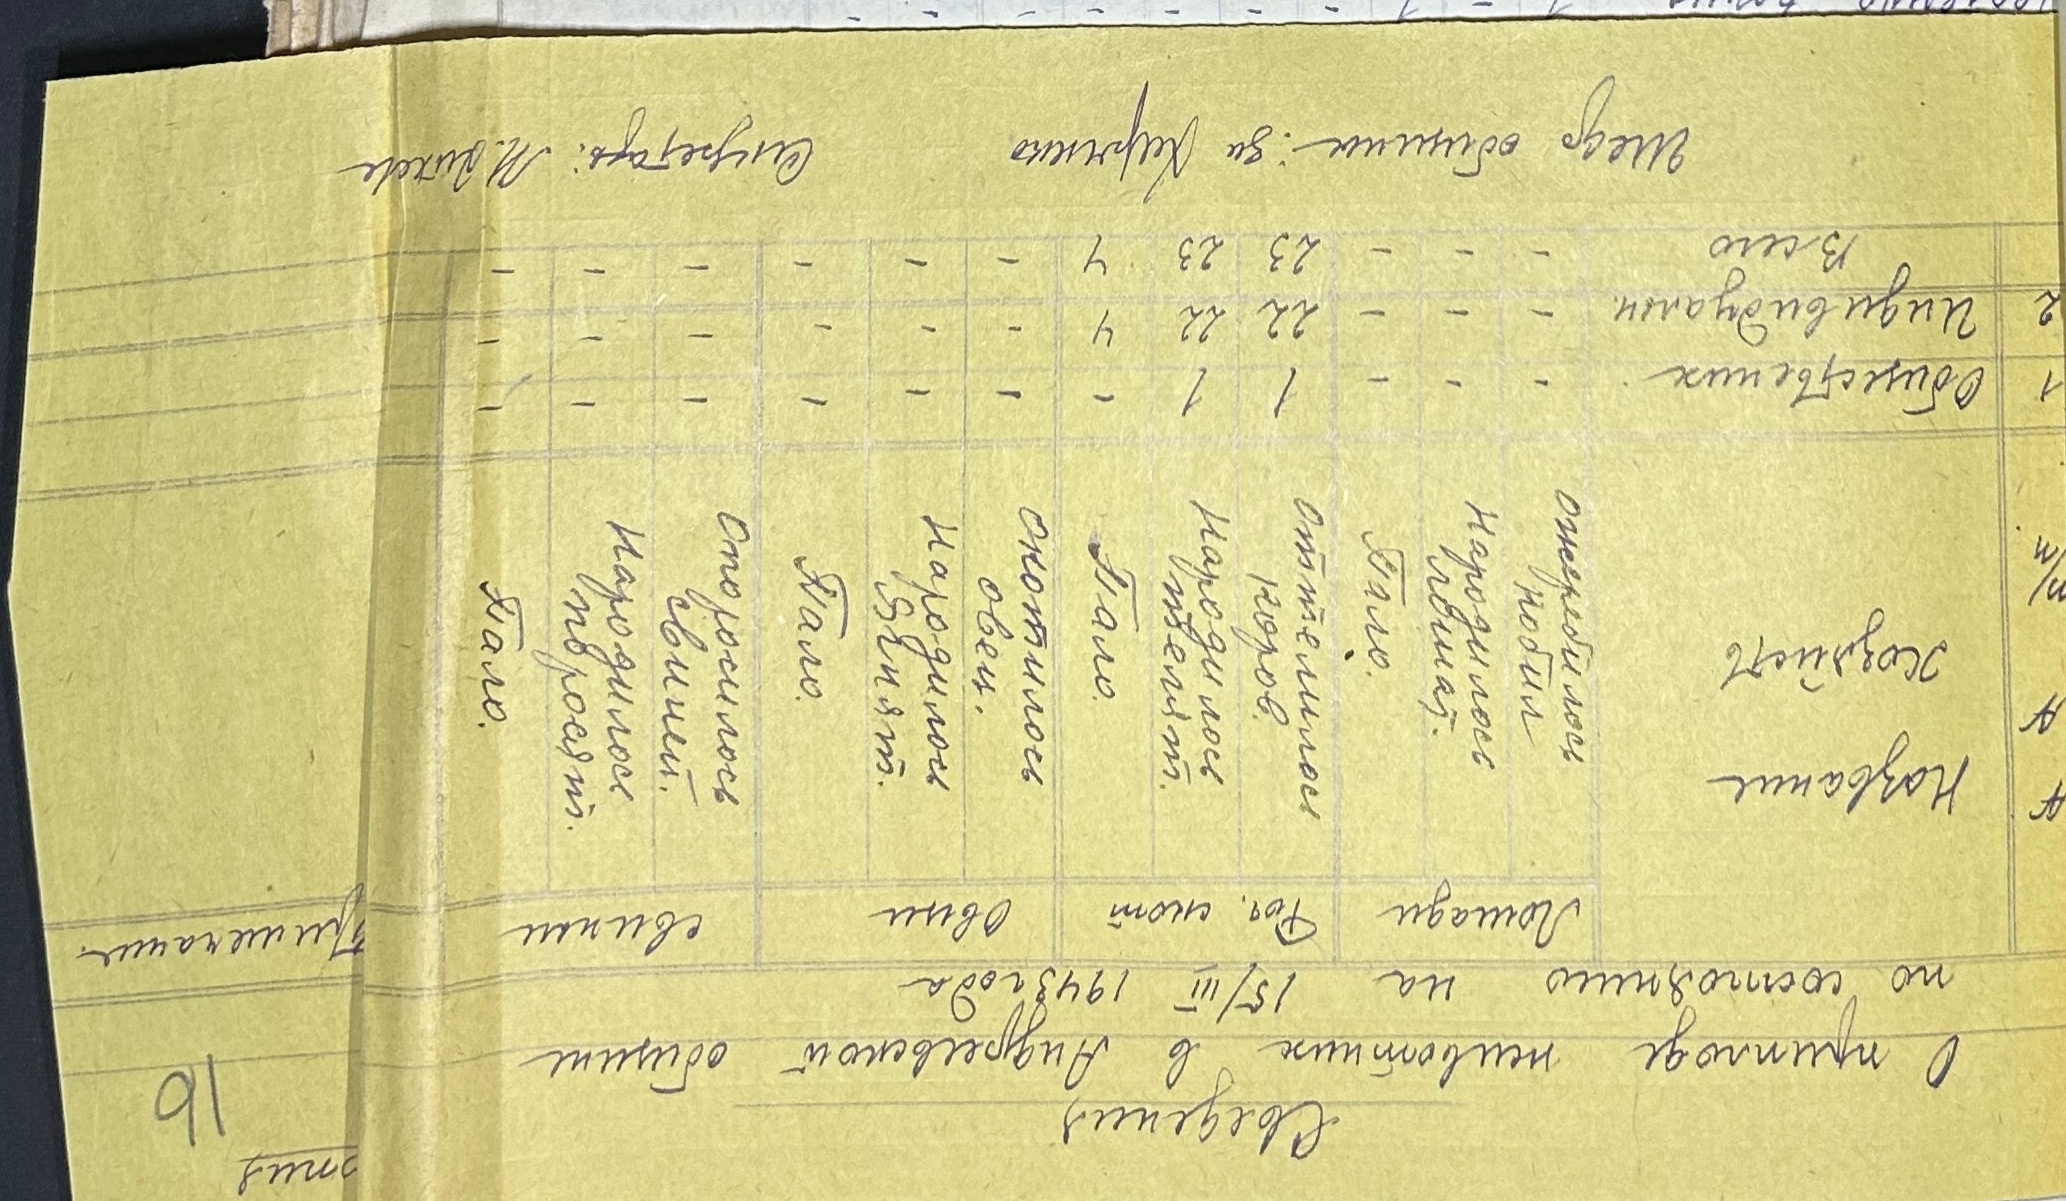 16
Сведения
О приплоде животных в Андреевской общине
по состоянию на 15/III 1943 года
№ № п/п. Название хозяйств Лошади Рог. скот Овцы свиньи Примечание.
Ожеребилось кобыл Народилось лошат. Пало. Отелилось коров. Народилось телят. Пало. Окотилось овец. Народилось ягнят. Пало. Опоросилось свиней. Народилось поросят. Пало.
1 Общественных - - - 1 1 - - - - - - -
2 Индивидуальн. - - - 22 22 4 - - - - - -
Всего - - - 23 23 4 - - - - - -
общины: за Секретарь: